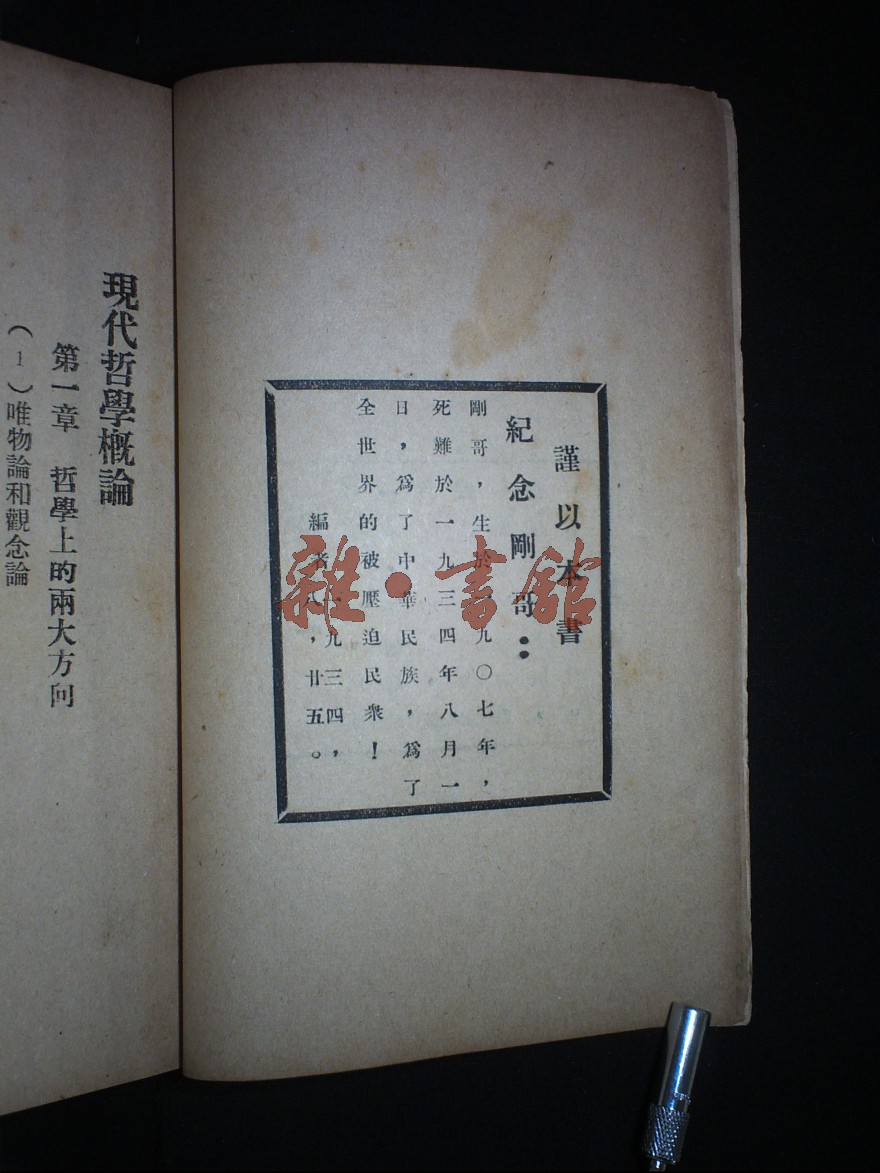 謹以本書
紀念剛哥：
剛哥，生於一九〇七年，
死難於一九三四年八月一
日，爲了中華民族，爲了
全世界的被壓迫民衆！
編者一九三四，
八，廿五。
現代哲學概論
第一章 哲學上的兩大方向
（1）唯物論和觀念論
雜·書館